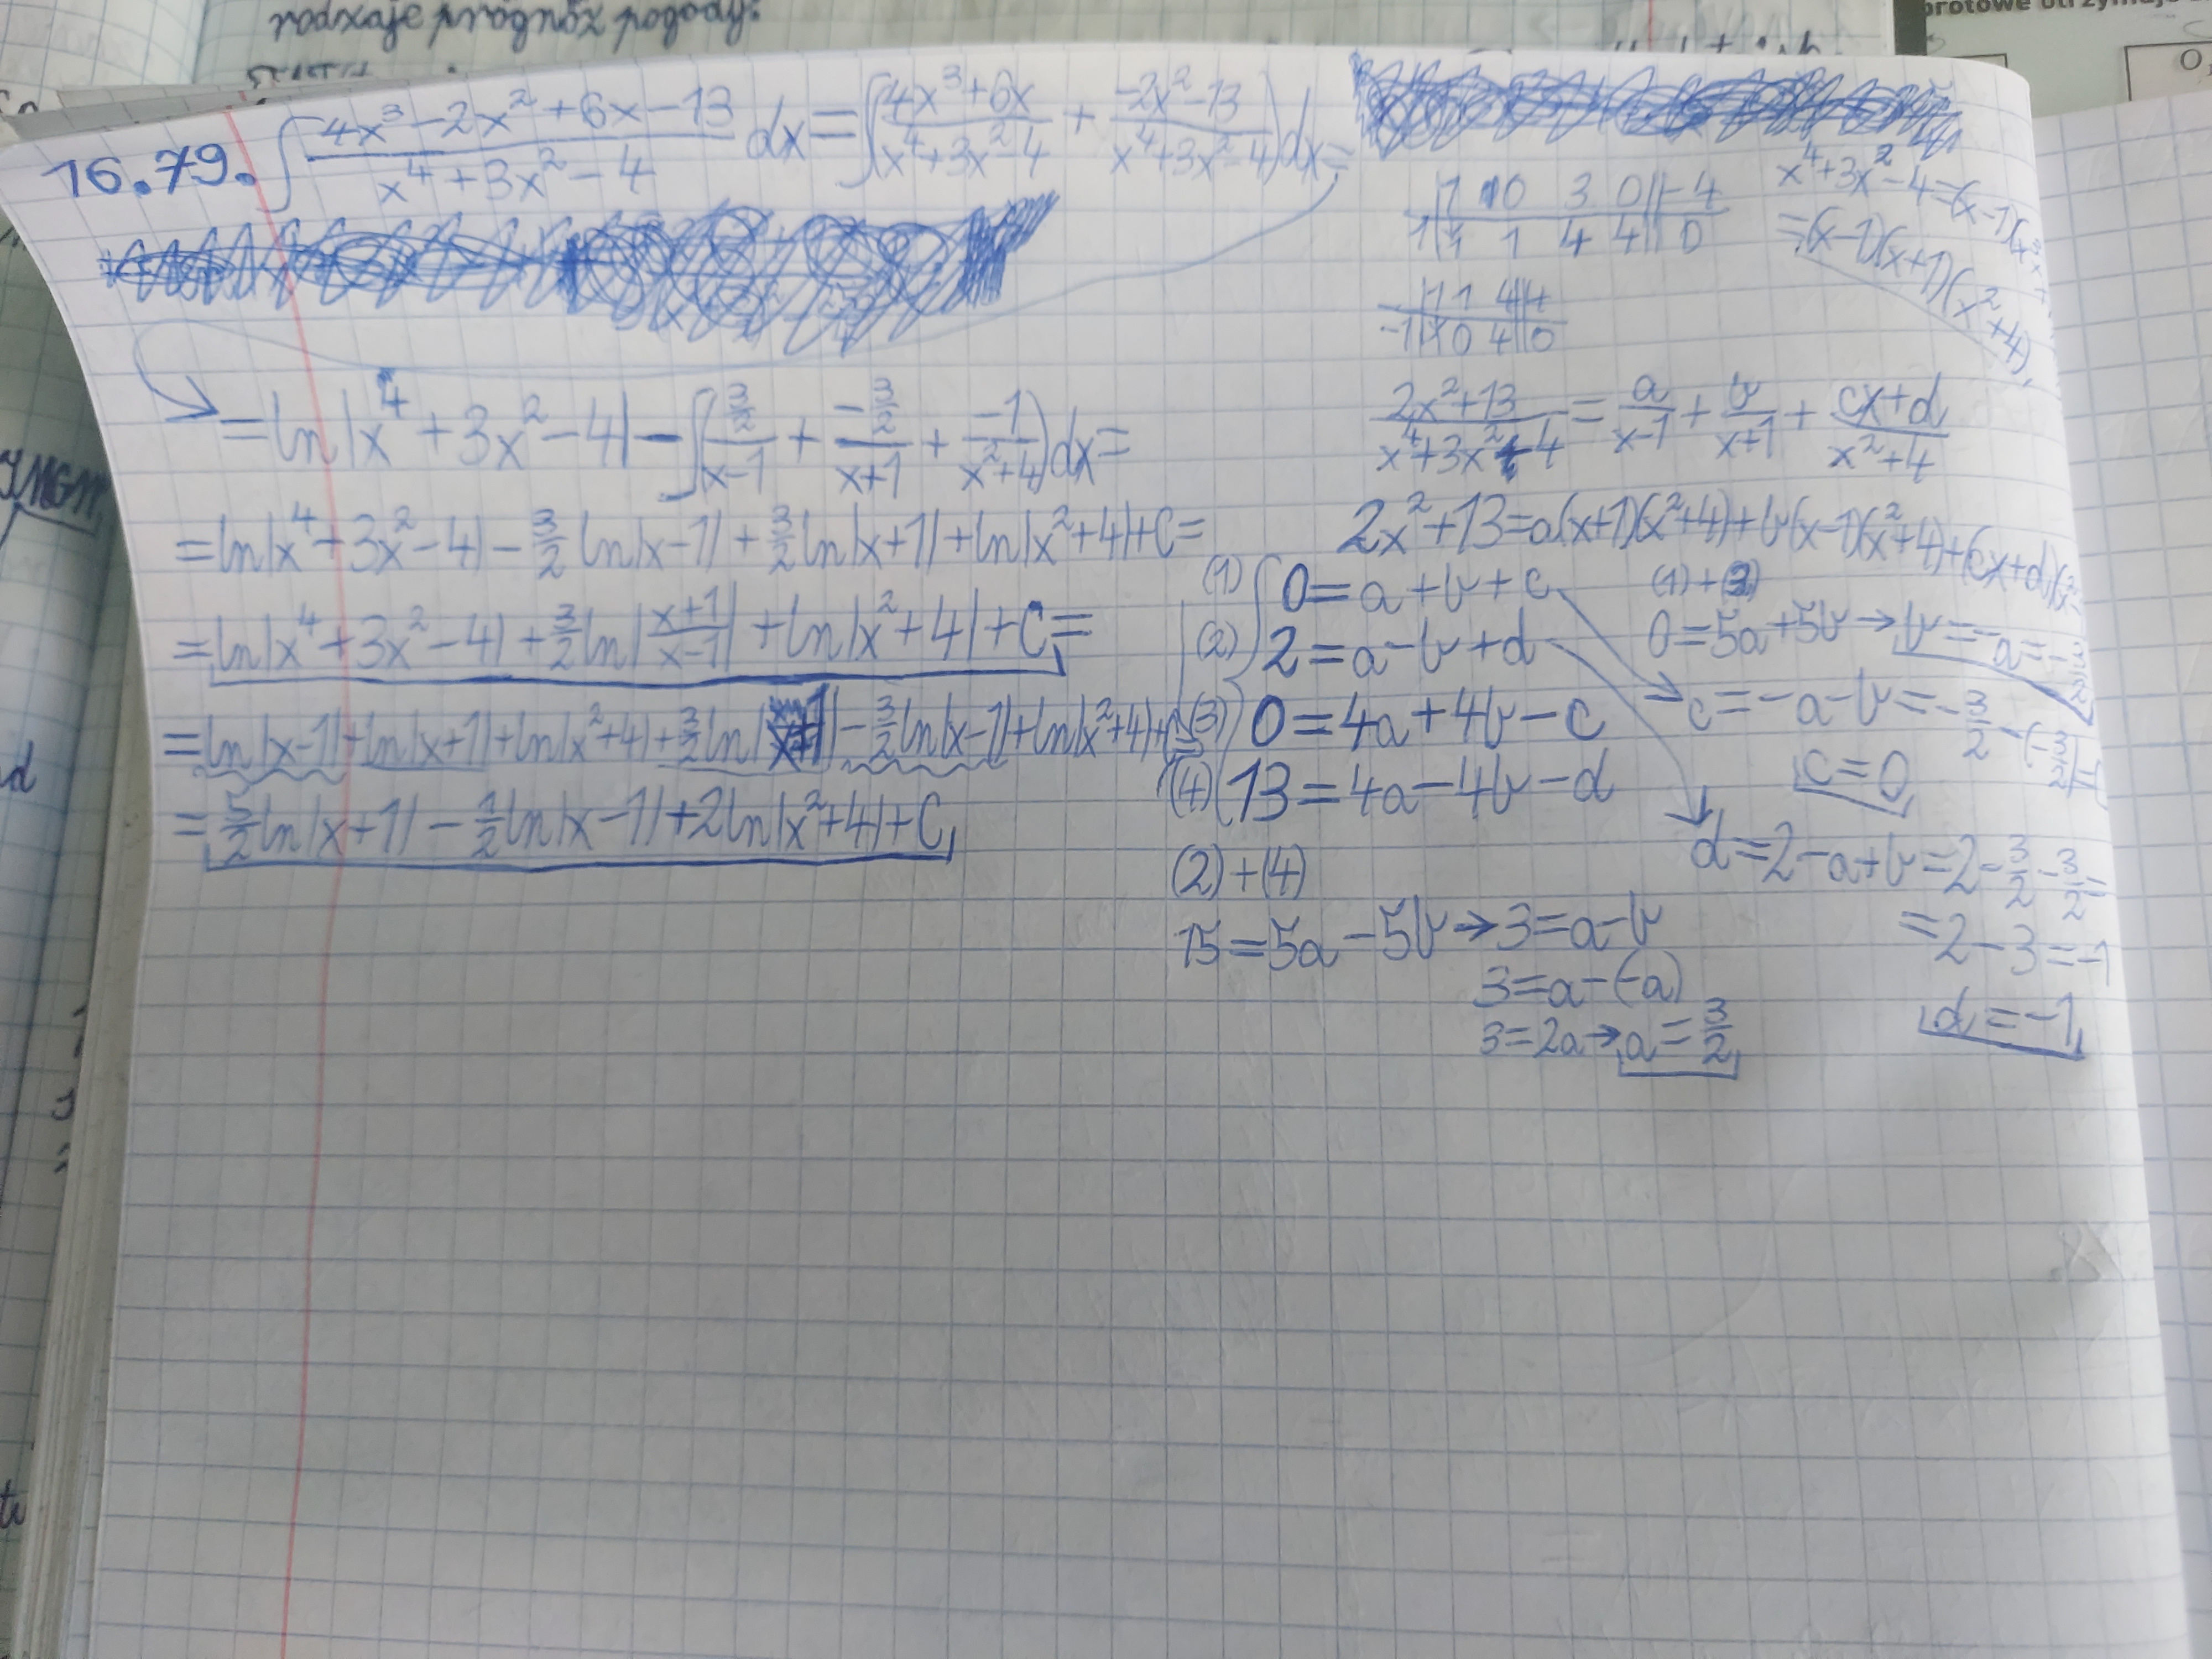 rodzaje prognoz pogody:
16.79. ∫ (4x³-2x²+6x-13)/(x⁴+3x²-4) dx = ∫((4x³+6x)/(x⁴+3x²-4) + (-2x²-13)/(x⁴+3x²-4))dx =
= ln|x⁴+3x²-4| - ∫((3/2)/(x-1) + (-3/2)/(x+1) + (-1)/(x²+4))dx =
= ln|x⁴+3x²-4| - 3/2 ln|x-1| + 3/2 ln|x+1| + ln|x²+4| + C =
= ln|x⁴+3x²-4| + 3/2 ln|(x+1)/(x-1)| + ln|x²+4| + C =
= ln|x-1| + ln|x+1| + ln|x²+4| + 3/2 ln|x+1| - 3/2 ln|x-1| + ln|x²+4| +
= 5/2 ln|x+1| - 1/2 ln|x-1| + 2ln|x²+4| + C
1 0 3 0 | -4
1 | 1 1 4 4 | 0
1 1 4 4
-1 | 1 0 4 0
x⁴+3x²-4=(x-1)(
=(x-1)(x+1)(x²+4)
(2x²+13)/(x⁴+3x²-4) = a/(x-1) + b/(x+1) + (cx+d)/(x²+4)
2x²+13=a(x+1)(x²+4)+b(x-1)(x²+4)+(cx+d)(x²-
(1) 0=a+b+c
(2) 2=a-b+d
(3) 0=4a+4b-c
(4) 13=4a-4b-d
(2)+(4)
15=5a-5b→3=a-b
3=a-(-a)
3=2a→a=3/2
(1)+(3)
0=5a+5b→b=-a=-3/2
c=-a-b=-3/2-(-3/2)=
c=0
d=2-a+b=2-3/2-3/2=
=2-3=-1
d=-1